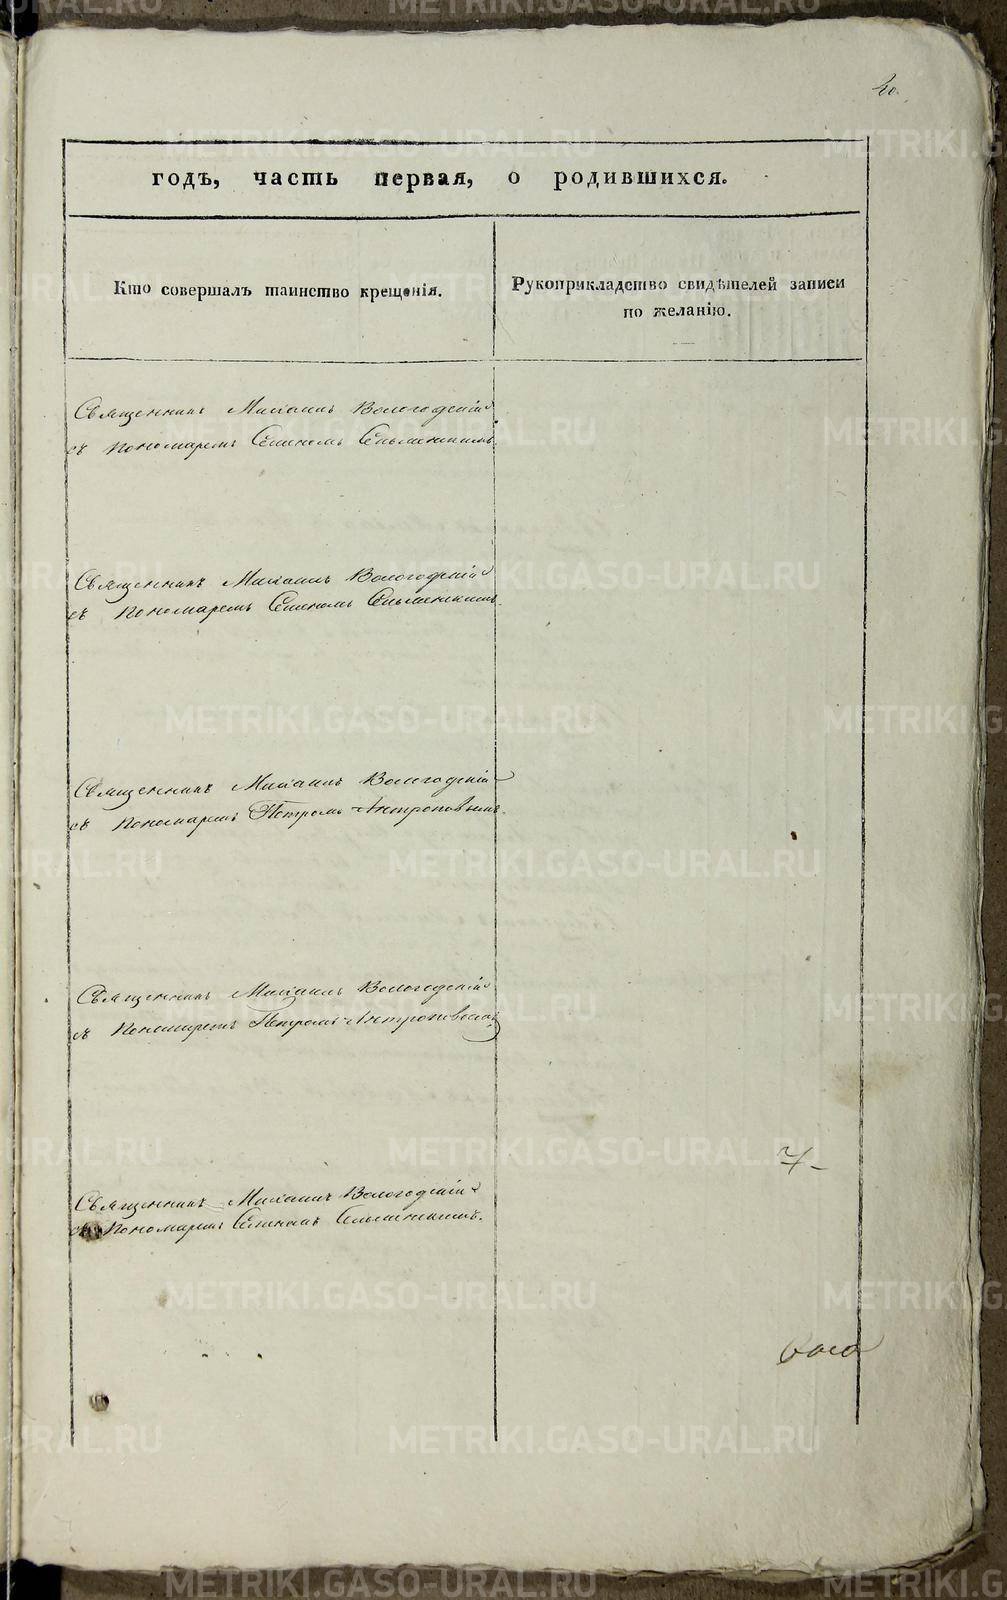 20.
годъ, часть первая, о родившихся.
Кто совершалъ таинство крещенія.
Рукоприкладство свидѣтелей записи
по желанію.
Священникъ Михаилъ Вологодскій
съ пономаремъ Семеномъ
Священникъ Михаилъ Вологодскій
съ Пономаремъ Семеномъ
Священникъ Михаилъ Вологодскій
съ пономаремъ Петромъ Антроповымъ.
Священникъ Михаилъ Вологодскій
съ Пономаремъ Петромъ Антроповымъ
Священникъ Михаилъ Вологодскій
съ Пономаремъ Семеномъ
METRIKI.GASO-URAL.RU